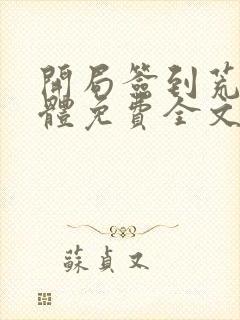 開局簽到荒
體免費全文
蘇貞又